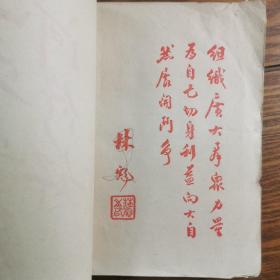 组织广大群众力量
为自己切身利益向大自
然展开斗争
林彪